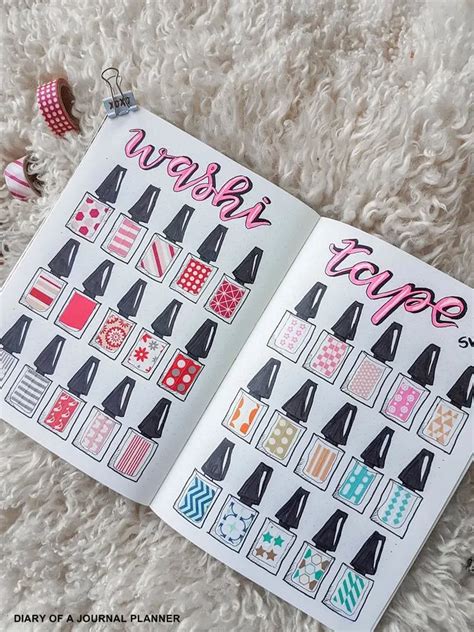 washi
tape
SW
DIARY OF A JOURNAL PLANNER